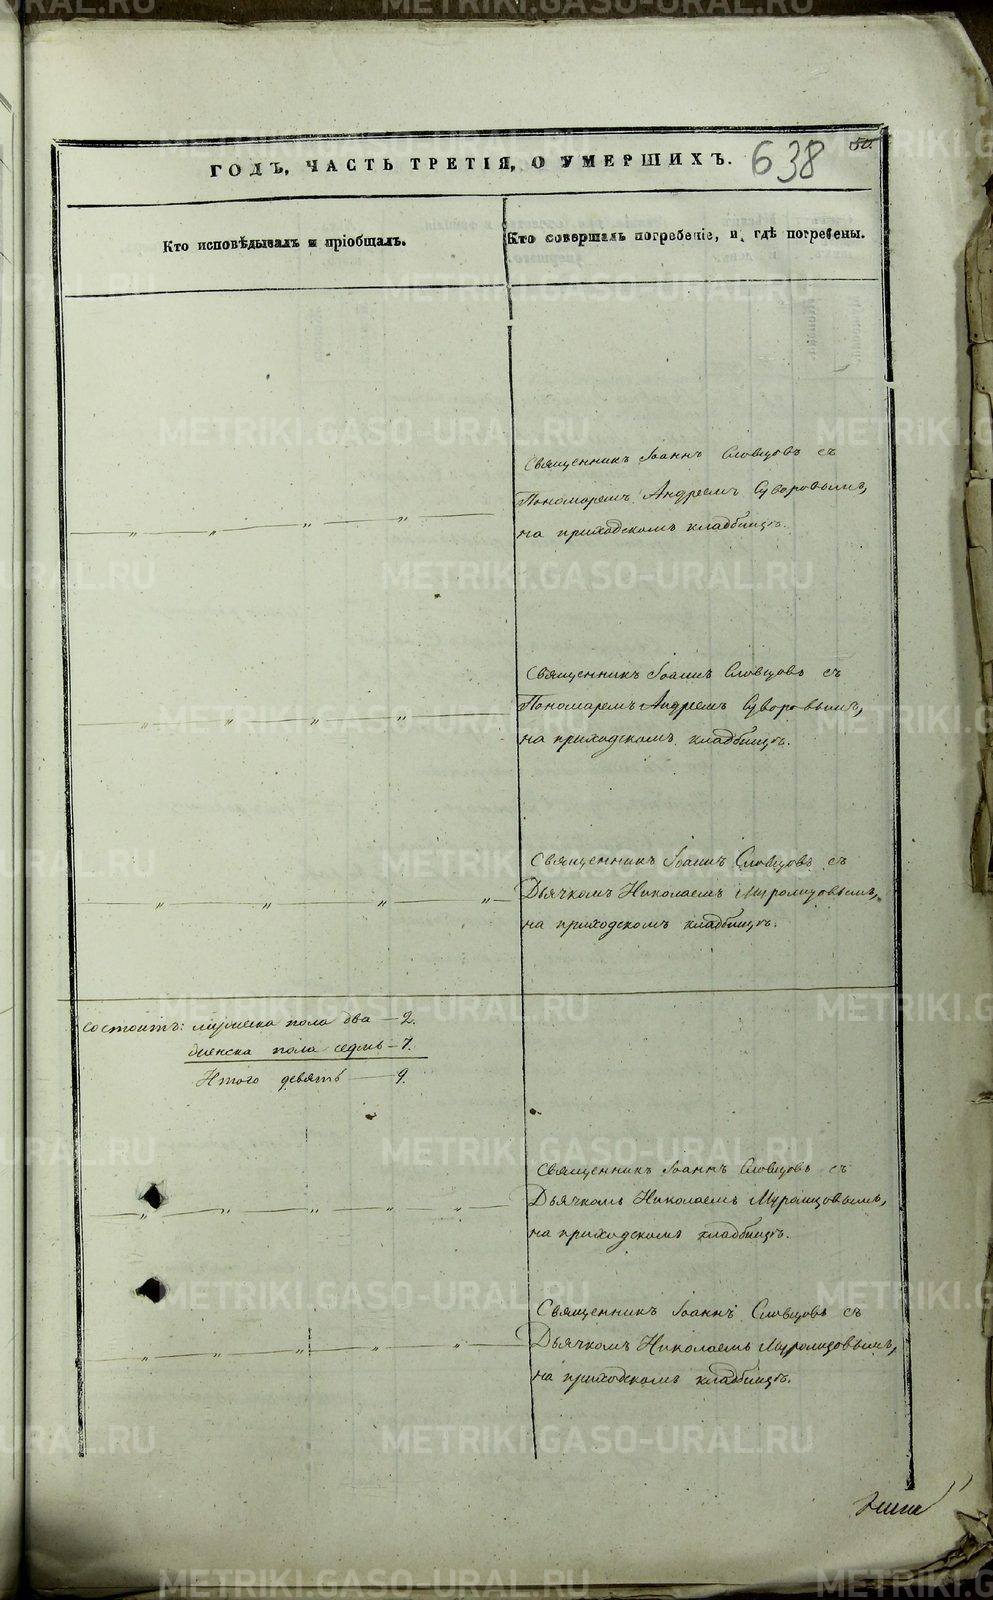 ГОДЪ, ЧАСТЬ ТРЕТІЯ, О УМЕРШИХЪ.
638
50.
Кто исповѣдывалъ и пріобщалъ.
Кто совершалъ погребеніе, и гдѣ погребены.
Священникъ Іоаннъ Словцовъ съ
Пономаремъ Андреемъ Суворовымъ,
на приходскомъ кладбищѣ.
Священникъ Іоаннъ Словцовъ съ
Пономаремъ Андреемъ Суворовымъ,
на приходскомъ кладбищѣ.
Священникъ Іоаннъ Словцовъ съ
Дьячкомъ Николаемъ Муромцовымъ,
на приходскомъ кладбищѣ.
состоитъ: мужеска пола два — 2.
женска пола седмь — 7.
Итого девять — 9.
Священникъ Іоаннъ Словцовъ съ
Дьячкомъ Николаемъ Муромцовымъ,
на приходскомъ кладбищѣ.
Священникъ Іоаннъ Словцовъ съ
Дьячкомъ Николаемъ Муромцовымъ,
на приходскомъ кладбищѣ.
METRIKI.GASO-URAL.RU